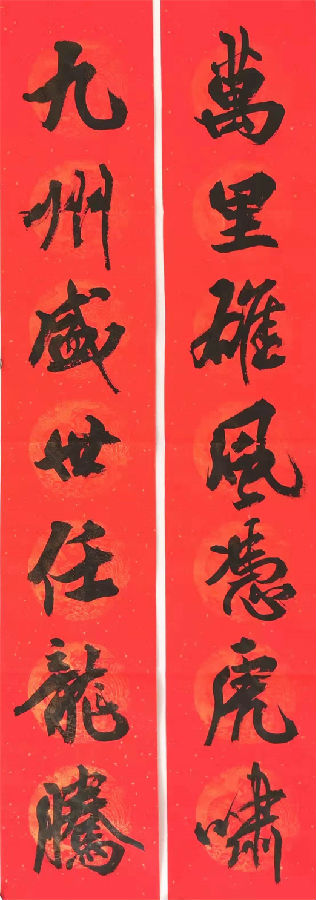 萬里雄風憑虎嘯
九州盛世任龍騰